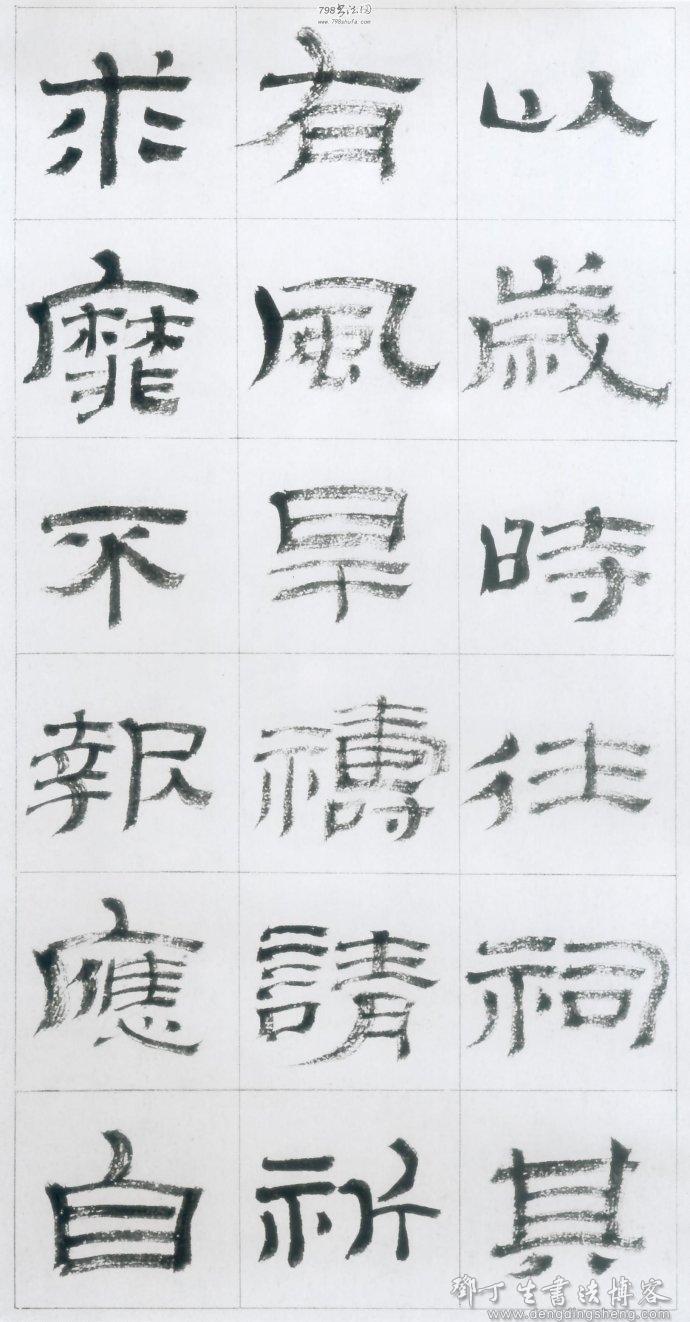 以歲時往祠其
有風旱禱請祈
求靡不報應自
798书法网
www.798shufa.com
鄧丁生書法博客
www.dengdingsheng.com